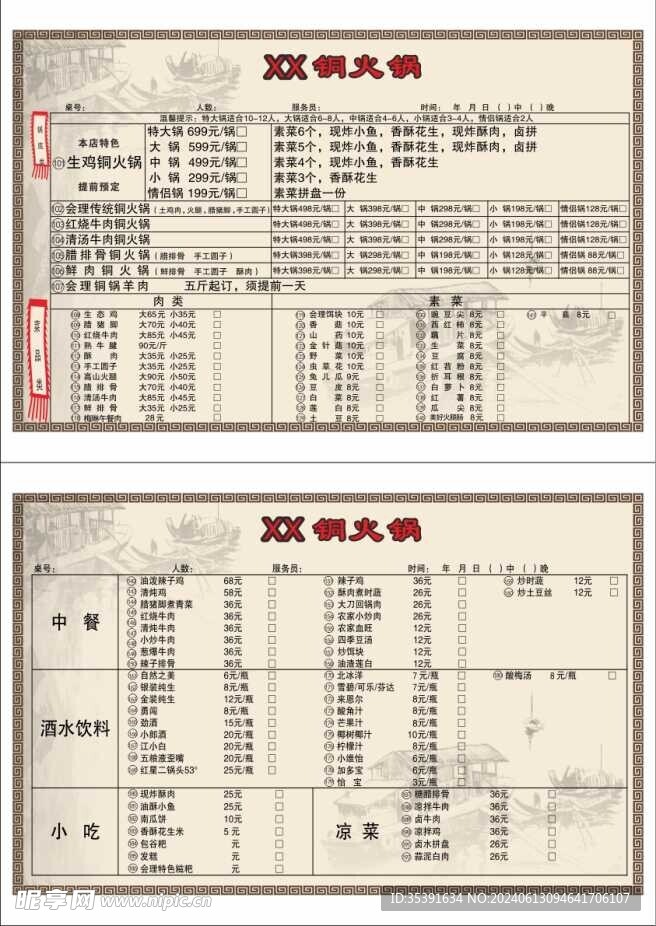 XX 铜火锅
桌号： 人数： 服务员： 时间： 年 月 日 ( )中 ( )晚
温馨提示：特大锅适合10-12人，大锅适合6-8人，中锅适合4-6人，小锅适合3-4人，情侣锅适合2人
锅底类
本店特色
101 生鸡铜火锅
提前预定
特大锅 699元/锅□ 素菜6个，现炸小鱼，香酥花生，现炸酥肉，卤拼
大 锅 599元/锅□ 素菜5个，现炸小鱼，香酥花生，现炸酥肉，卤拼
中 锅 499元/锅□ 素菜4个，现炸小鱼，香酥花生
小 锅 299元/锅□ 素菜3个，香酥花生
情侣锅 199元/锅□ 素菜拼盘一份
102 会理传统铜火锅（土鸡肉，火腿，腊猪脚，手工圆子） 特大锅498元/锅□ 大 锅398元/锅□ 中 锅298元/锅□ 小 锅198元/锅□ 情侣锅128元/锅□
103 红烧牛肉铜火锅 特大锅498元/锅□ 大 锅398元/锅□ 中 锅298元/锅□ 小 锅198元/锅□ 情侣锅128元/锅□
104 清汤牛肉铜火锅 特大锅498元/锅□ 大 锅398元/锅□ 中 锅298元/锅□ 小 锅198元/锅□ 情侣锅128元/锅□
105 腊排骨铜火锅（腊排骨 手工圆子） 特大锅498元/锅□ 大 锅398元/锅□ 中 锅298元/锅□ 小 锅198元/锅□ 情侣锅 88元/锅□
106 鲜肉铜火锅（鲜排骨 手工圆子 酥肉） 特大锅498元/锅□ 大 锅398元/锅□ 中 锅298元/锅□ 小 锅128元/锅□ 情侣锅 88元/锅□
107 会理铜锅羊肉 五斤起订，须提前一天
菜品类
肉 类 素 菜
生态鸡 大65元 小35元 □ 会理饵块 10元 □ 豌豆尖 8元 □ 平菇 8元 □
腊猪脚 大70元 小40元 □ 香菇 10元 □ 西红柿 8元 □
红烧牛肉 大85元 小45元 □ 山药 10元 □ 藕片 8元 □
熟牛腱 90元/斤 □ 金针菇 10元 □ 生菜 8元 □
酥肉 大35元 小25元 □ 野菜 10元 □ 豆腐 8元 □
手工圆子 大35元 小25元 □ 虫草花 10元 □ 红苕粉 8元 □
高山火腿 大90元 小50元 □ 兔儿瓜 9元 □ 折耳根 8元 □
腊排骨 大70元 小40元 □ 豆皮 8元 □ 白萝卜 8元 □
清汤牛肉 大85元 小45元 □ 白菜 8元 □ 红薯 8元 □
鲜排骨 大35元 小25元 □ 莲白 8元 □ 瓜尖 8元 □
梅林午餐肉 28元 □ 土豆 8元 □ 美好火腿肠 8元 □
XX 铜火锅
桌号： 人数： 服务员： 时间： 年 月 日 ( )中 ( )晚
中 餐
油泼辣子鸡 68元 □ 辣子鸡 36元 □ 炒时蔬 12元 □
清炖鸡 58元 □ 酥肉煮时蔬 26元 □ 炒土豆丝 12元 □
腊猪脚煮青菜 36元 □ 大刀回锅肉 26元 □
红烧牛肉 36元 □ 农家小炒肉 26元 □
清炖牛肉 36元 □ 农家血旺 12元 □
小炒牛肉 36元 □ 四季豆汤 12元 □
葱爆牛肉 36元 □ 炒饵块 12元 □
辣子排骨 36元 □ 油渣莲白 12元 □
酒水饮料
自然之美 6元/瓶 □ 北冰洋 7元/瓶 □ 酸梅汤 8元/瓶 □
银装纯生 8元/瓶 □ 雪碧/可乐/芬达 7元/瓶 □
金装纯生 12元/瓶 □ 来恩尔 8元/瓶 □
勇闯 8元/瓶 □ 酸角汁 8元/瓶 □
劲酒 15元/瓶 □ 芒果汁 8元/瓶 □
小郎酒 20元/瓶 □ 椰树椰汁 10元/瓶 □
江小白 20元/瓶 □ 柠檬汁 8元/瓶 □
五粮液歪嘴 20元/瓶 □ 小维怡 6元/瓶 □
红星二锅头53° 25元/瓶 □ 加多宝 6元/瓶 □
怡宝 3元/瓶 □
小 吃 凉 菜
现炸酥肉 25元 □ 糖醋排骨 36元 □
油酥小鱼 25元 □ 凉拌牛肉 36元 □
南瓜饼 10元 □ 卤牛肉 36元 □
香酥花生米 5元 □ 凉拌鸡 36元 □
包谷粑 元 □ 卤水拼盘 26元 □
发糕 元 □ 蒜泥白肉 26元 □
会理特色糍粑 元 □
昵享网 www.nipic.cn
ID:35391634 NO:20240613094641706107